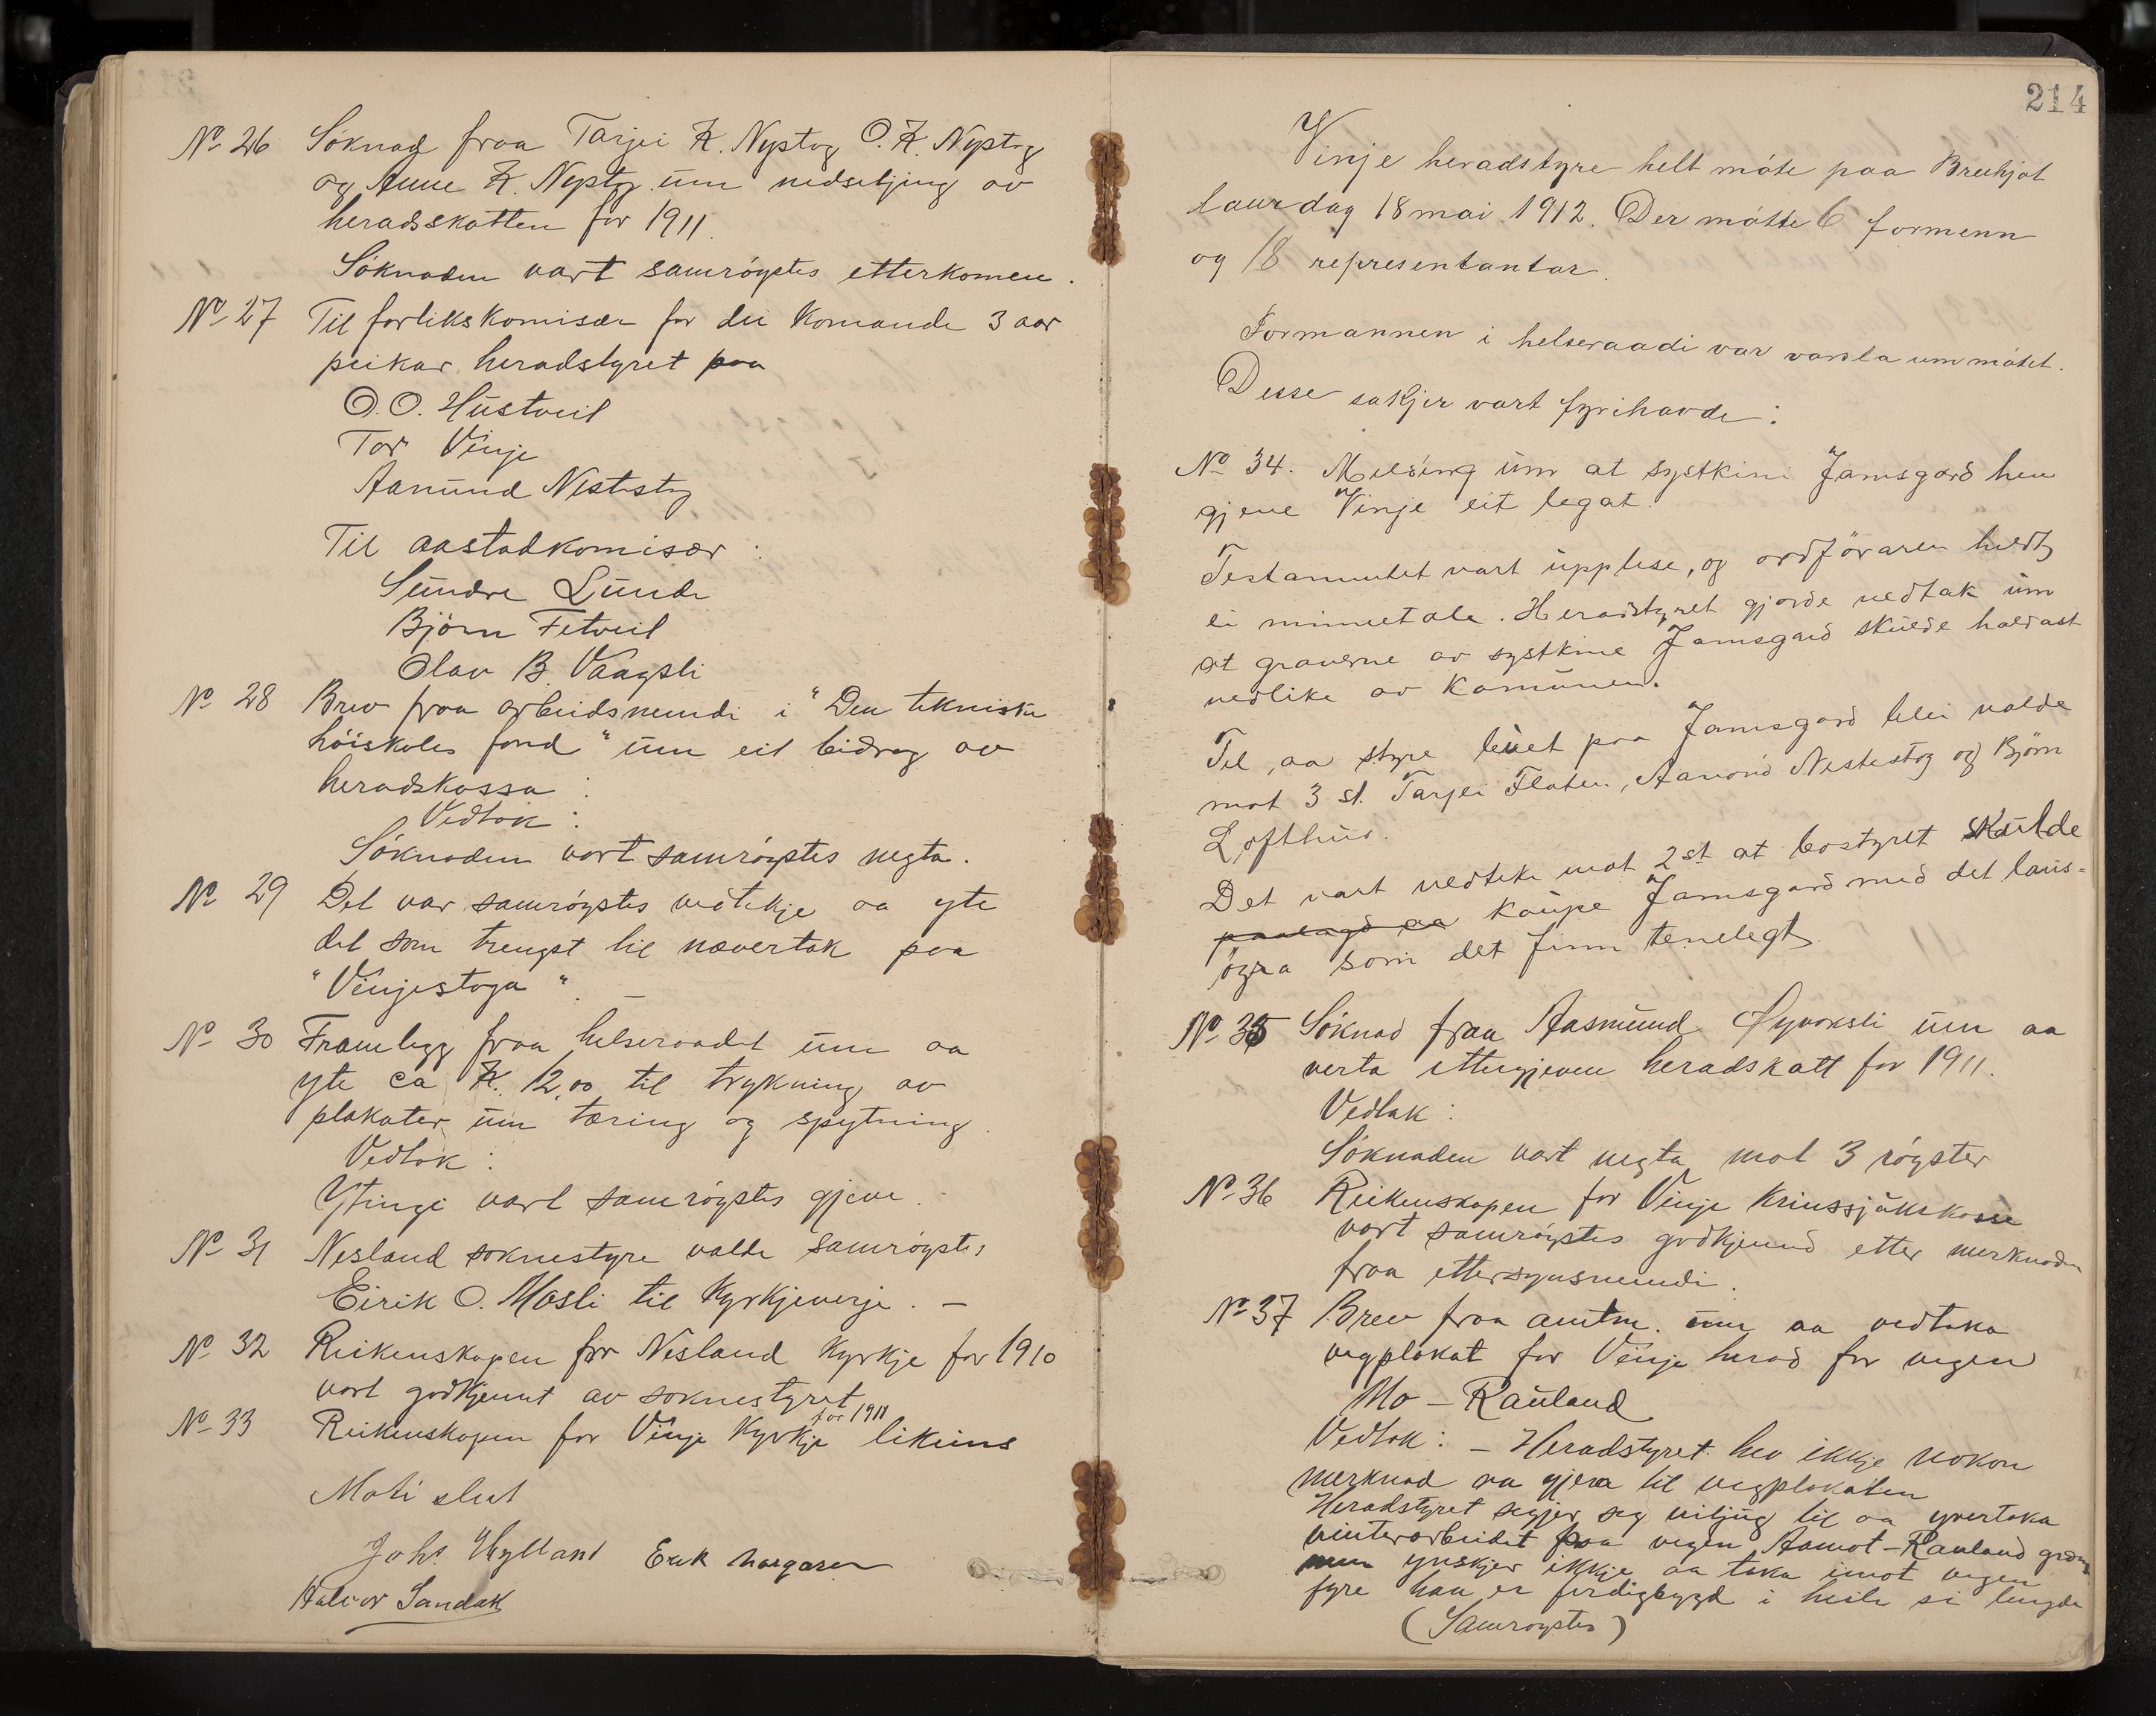 No 26 Söknad fraa Tarjei K. Nystog O. K. Nystog
og Anne K. Nystog um nedsetjing av
heradsskatten for 1911.
Söknaden vart samröystes etterkomen.
No 27 Til forlikskomisær for dei komande 3 aar
peikar heradstyret paa
O. O. Hustveit
Tor Vinje
Aanund Nestestog
Til aastadkomisær :
Sundre Lunde
Björn Fetveit
Olav B. Vaagsli
No 28 Brev fraa arbeidsnemndi i "Den tekniske
höiskoles fond" um eit bidrag av
heradskassa :
Vedtak :
Söknaden vart samröystes negta.
No 29 Det var samröystes vedtekje aa yte
det som trengst til nævertak paa
"Vinjestoga". —
No 30 Framlegg fraa helseraadet um aa
yte ca K. 12,00 til trykning av
plakater um tæring og spytning.
Vedtak :
Ytingi vart samröystes gjeve.
No 31 Nesland soknestyre valde samröystes
Eirik O. Mosli til Kyrkjeverje. —
No 32 Reikenskapen for Nesland Kyrkje for 1910
vart godkjennt av soknestyret
No 33 Reikenskapen for Vinje Kyrkje for 1911 likeins
Möti slut
Johs Hylland Erik Margaren
Halvor Sandok
214
Vinje heradstyre helt möte paa
laurdag 18 mai 1912. Der mötte 6 formenn
og 18 representantar.
Formannen i helseraadi var varsla um mötet.
Desse sakjer vart fyrihavde :
No 34. Melding um at systkini Jamsgard hev
gjeve Vinje eit legat.
Testamentet vart upplese, og ordföraren heldt
ei minnetale. Heradstyret gjorde vedtak um
at graverne av systkine Jamsgard skulde haldast
vedlike av Komunen.
Til aa styre buet paa Jamsgard blei valde
mot 3 st. Tarjei Flaten, Aanond Nestestog og Björn
Lofthus.
Det vart vedteke mot 2 st at bostyret skulde
paalagd aa kaupe Jamsgard med det laus=
öyra som det finn tenelegt.
No 35 Söknad fraa Aasmund Öyvoksli um aa
verta ettergjeven heradskatt for 1911.
Vedtak :
Söknaden vart negta mot 3 röyster
No 36 Reikenskapen for Vinje Krinssjukekasse
vart samröystes godkjennd etter merknaden
fraa ettersynsnemndi.
No 37 Brev fraa amtm. um aa vedtaka
vegplakat for Vinje herad for vegen
Mo – Rauland
Vedtak : – Heradstyret hev ikkje nokon
merknad aa gjera til vegplakaten
Heradstyret segjer seg viljug til aa yvertaka
vinterarbeidet paa vegen Aamot – Rauland
men ynskjer ikkje aa taka imot vegen
fyre han er ferdigbygd i heile si lengde
(Samröystes)